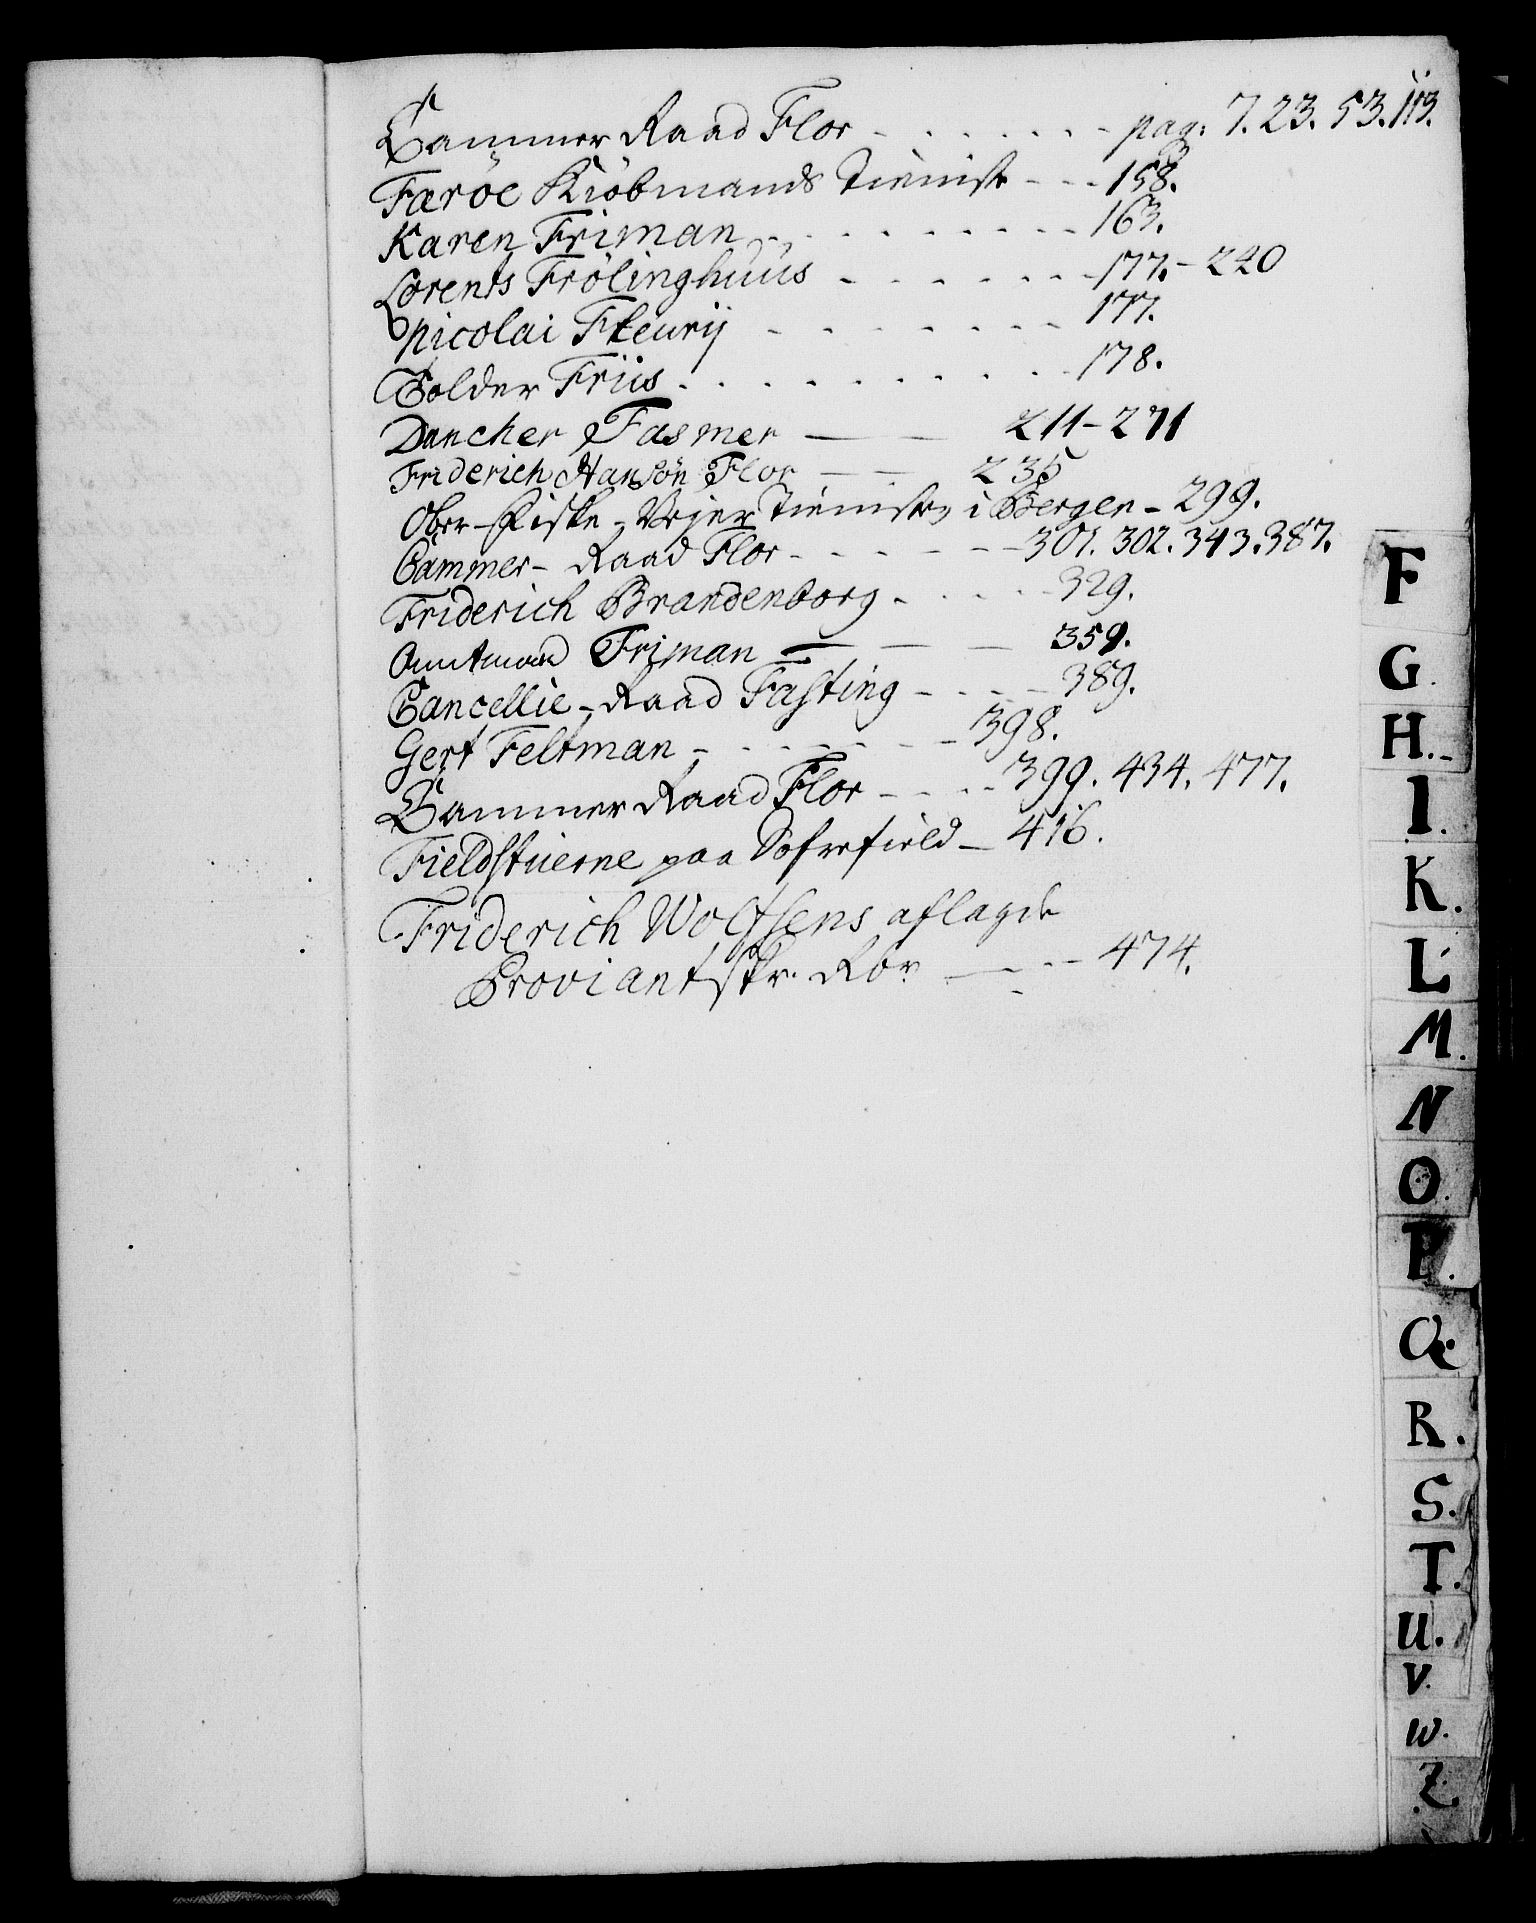 Cammer Raad Flor - - - - - - - pag: 7. 23. 53. 113.
Færöe Kiöbmands Tieniste - - - 158.
Karen Friman - - - - - - - - 163.
Lorents Frölinghuus - - - - - - 177. - 220
Nicolai Fleurij - - - - - - - 177.
Bolder Friis - - - - - - - - - 178.
Dancher Fasmer — — 211 - 271
Friderich Hansön Flor — — 235
Ober-Fiske-Vejer Tieniste i Bergen - 299.
Cammer-Raad Flor - - - - - - - 301. 302. 343. 387.
Friderich Brandenborg - - - - - 329.
Amtmand Friman — — — 359.
Cancellie-Raad Fasting - - - - 389.
Gert Feltman - - - - - - - 398.
Cammer Raad Flor - - - - 399. 434. 477.
Fieldstuerne paa Dofrefield — 416.
Friderich Wolfsens aflagde
Proviantskr. Rör — - - 474.
F
G.
H.
I.
K.
L.
M.
N
O.
P.
Q.
R.
S.
T.
U.
V.
W.
Z.